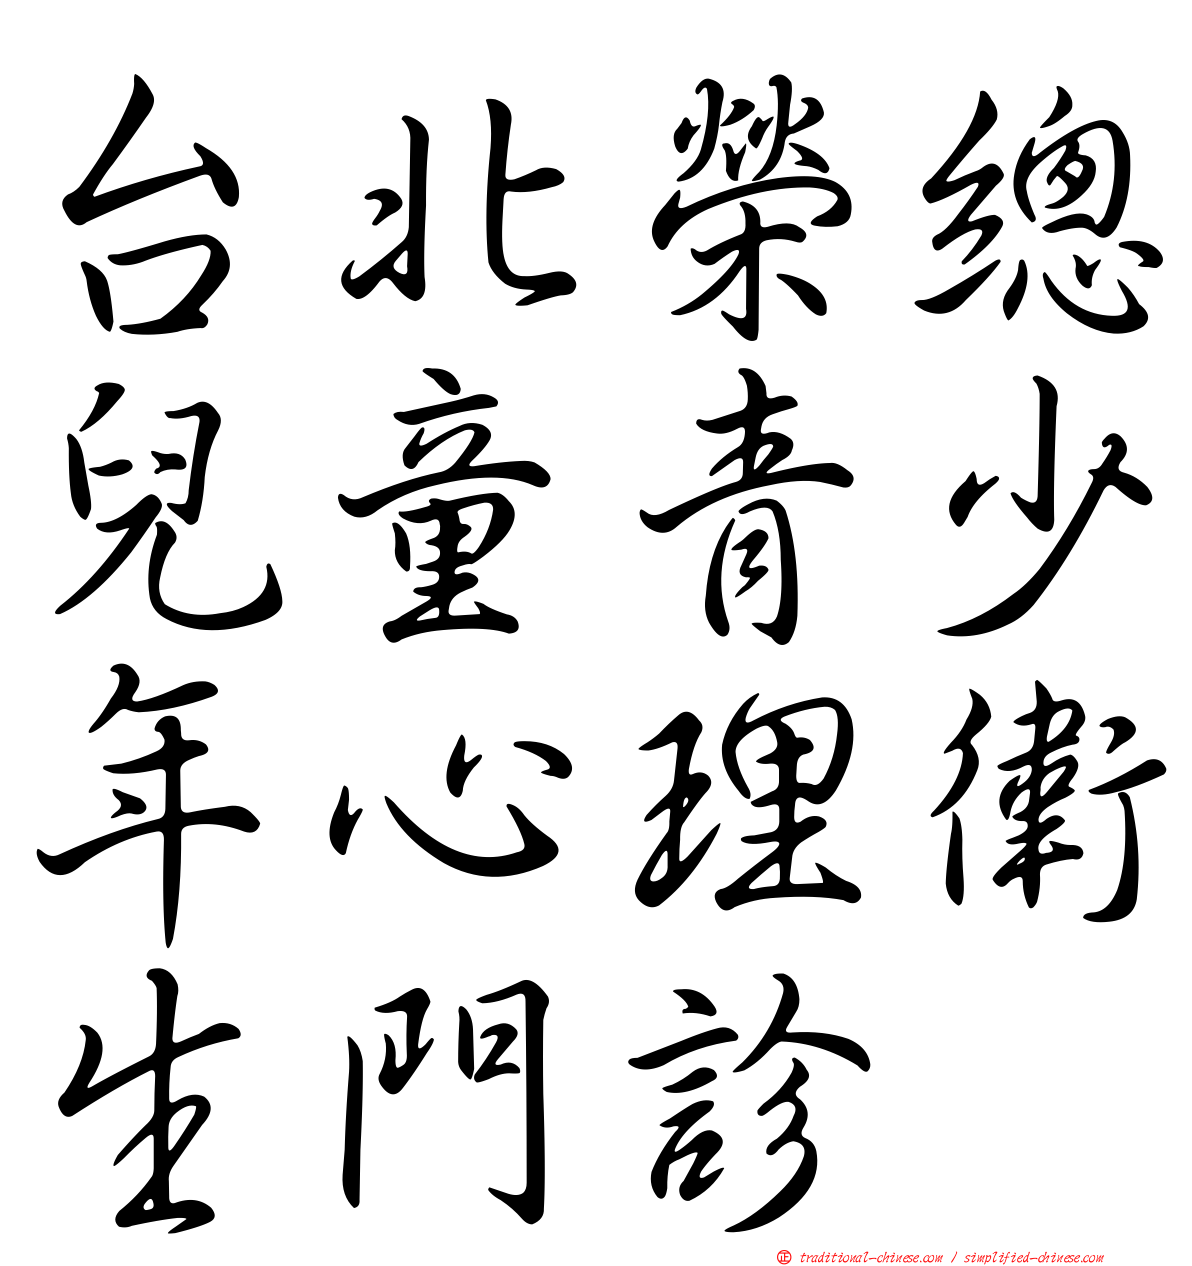 台北榮總
兒童青少
年心理衛
生門診
正 traditional-chinese.com / simplified-chinese.com